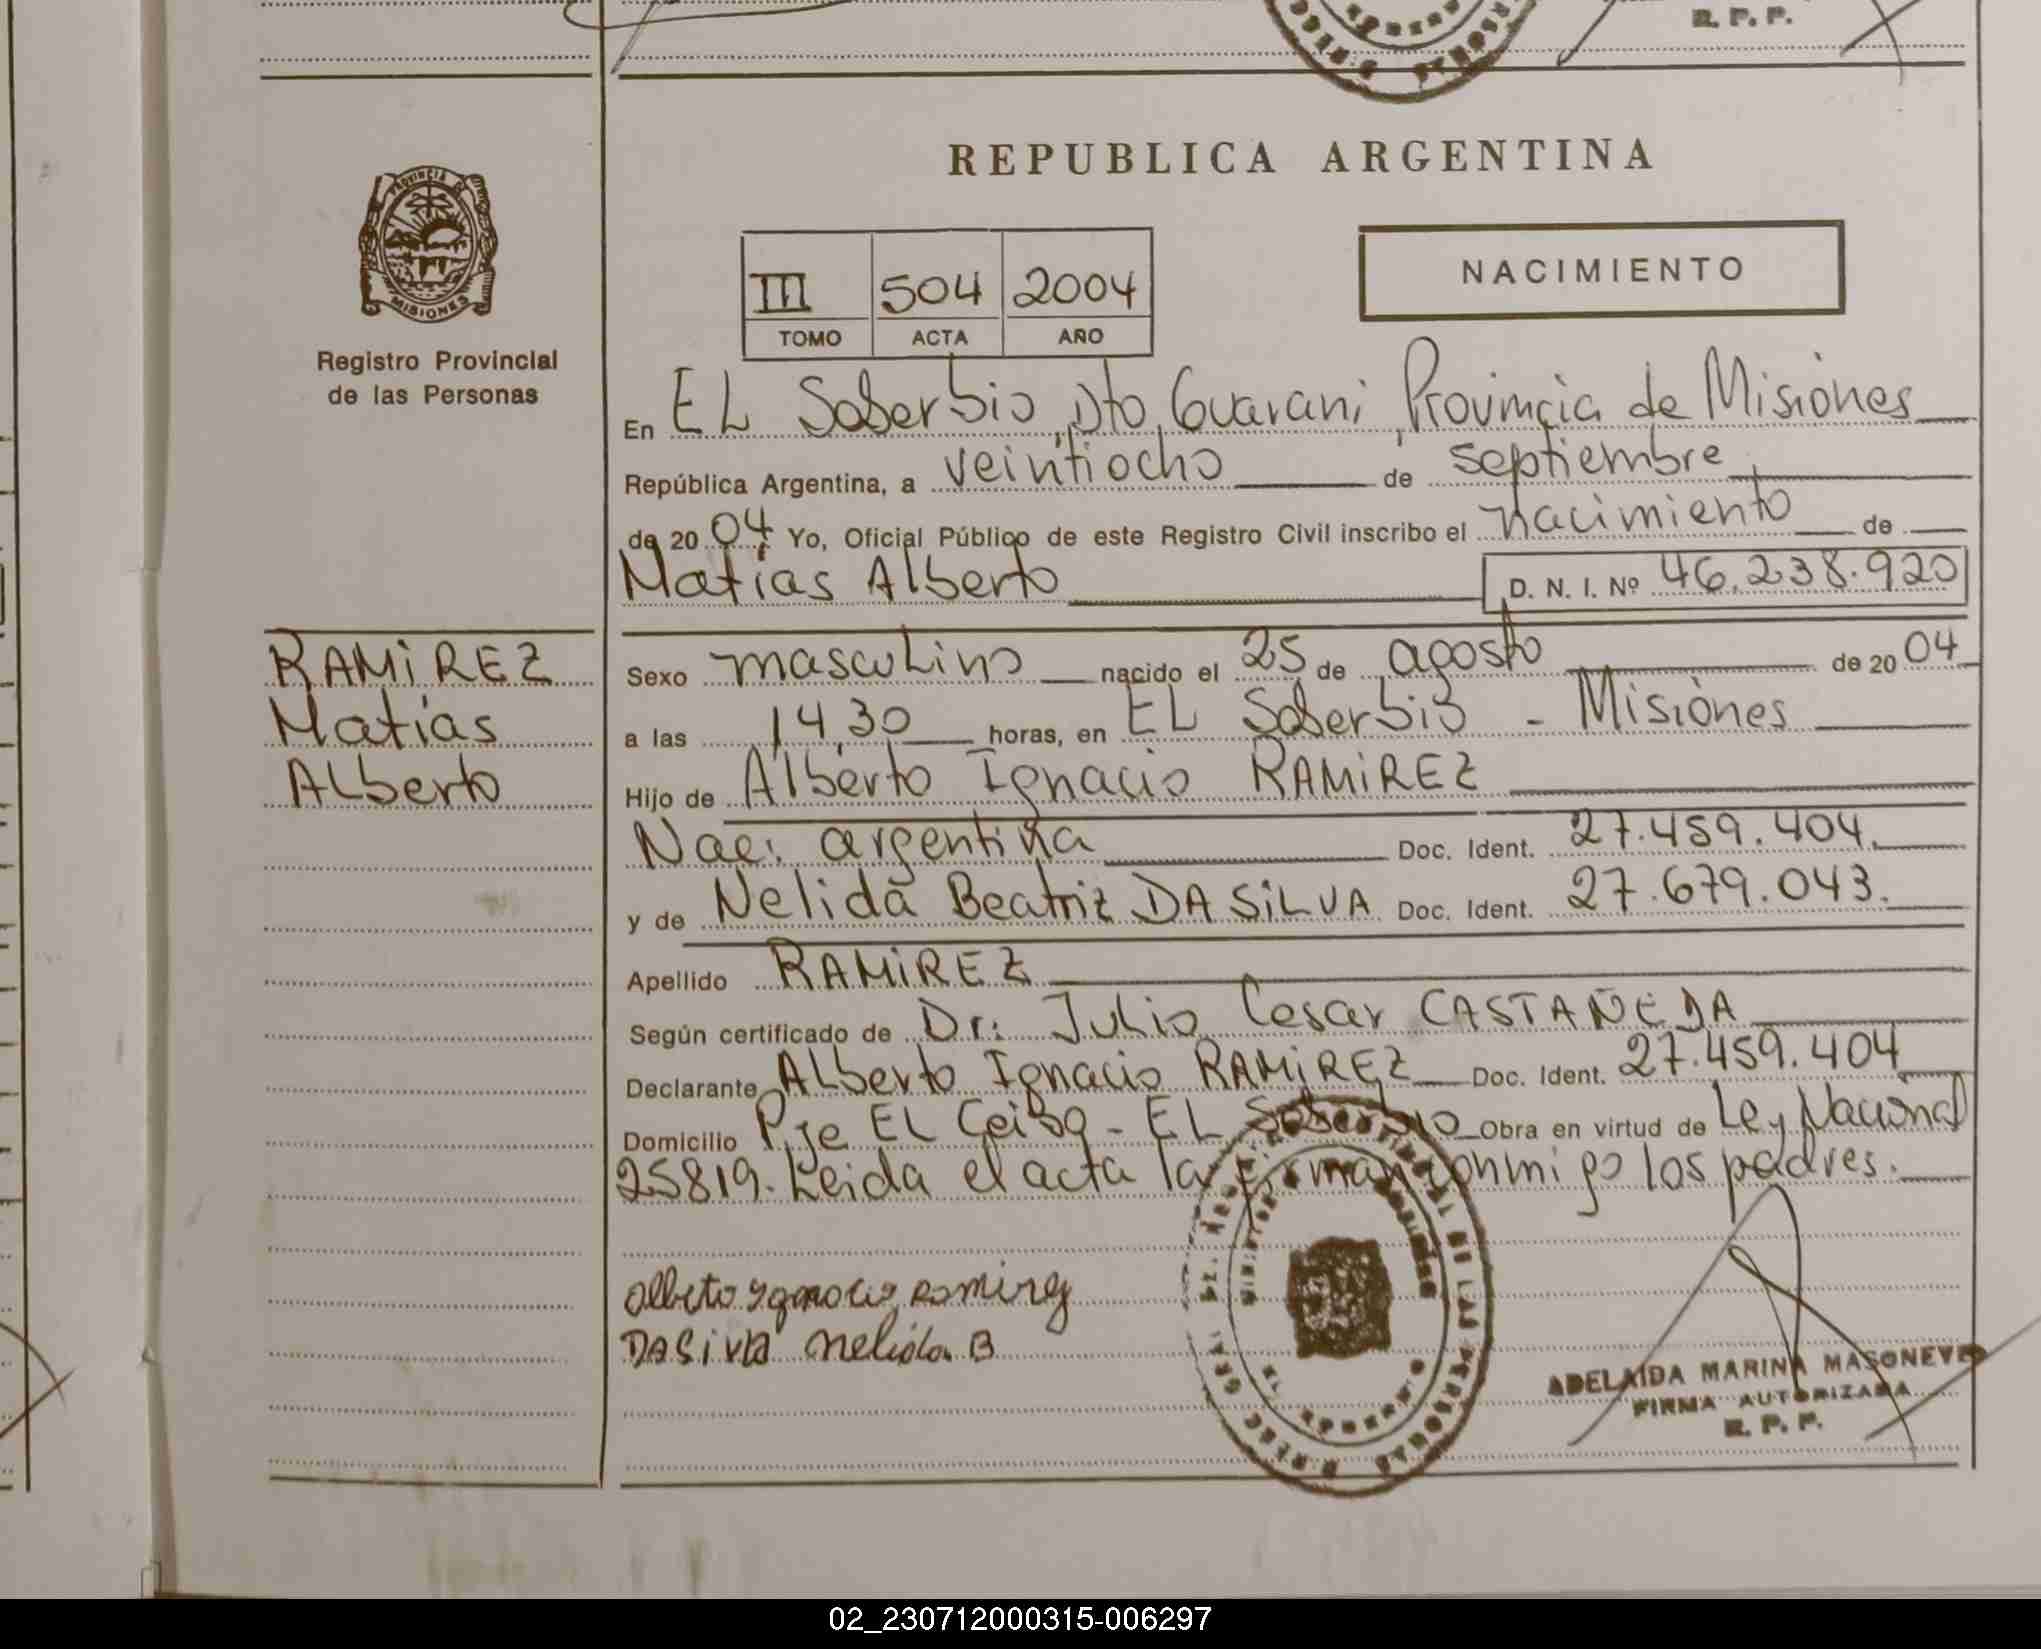 R. P. P.
PROVINCIA DE
MISIONES
Registro Provincial
de las Personas
REPUBLICA ARGENTINA
III 504 2004
TOMO ACTA AÑO
NACIMIENTO
En EL Soberbio, Dto, Guarani, Provincia de Misiones
República Argentina, a veintiocho de septiembre
de 2004 Yo, Oficial Público de este Registro Civil inscribo el nacimiento de
Matías Alberto D. N. I. Nº 46.238.920
RAMIREZ
Matías
Alberto
Sexo masculino nacido el 25 de agosto de 2004
a las 14,30 horas, en EL Soberbio - Misiones
Hijo de Alberto Ignacio RAMIREZ
Nac: argentina Doc. Ident. 27.459.404.
y de Nelida Beatriz DA SILVA Doc. Ident. 27.679.043.
Apellido RAMIREZ
Según certificado de Dr: Julio Cesar CASTAÑEDA
Declarante Alberto Ignacio RAMIREZ Doc. Ident. 27.459.404
Domicilio Pje EL Ceibo - EL Soberbio Obra en virtud de Ley Nacional
25819. Leida el acta la firman conmigo los padres.
Alberto Ygnacio Ramirez
DASiVa Nelida B
ADELAIDA MARINA MASONEVE
FIRMA AUTORIZADA
R. P. P.
02_230712000315-006297